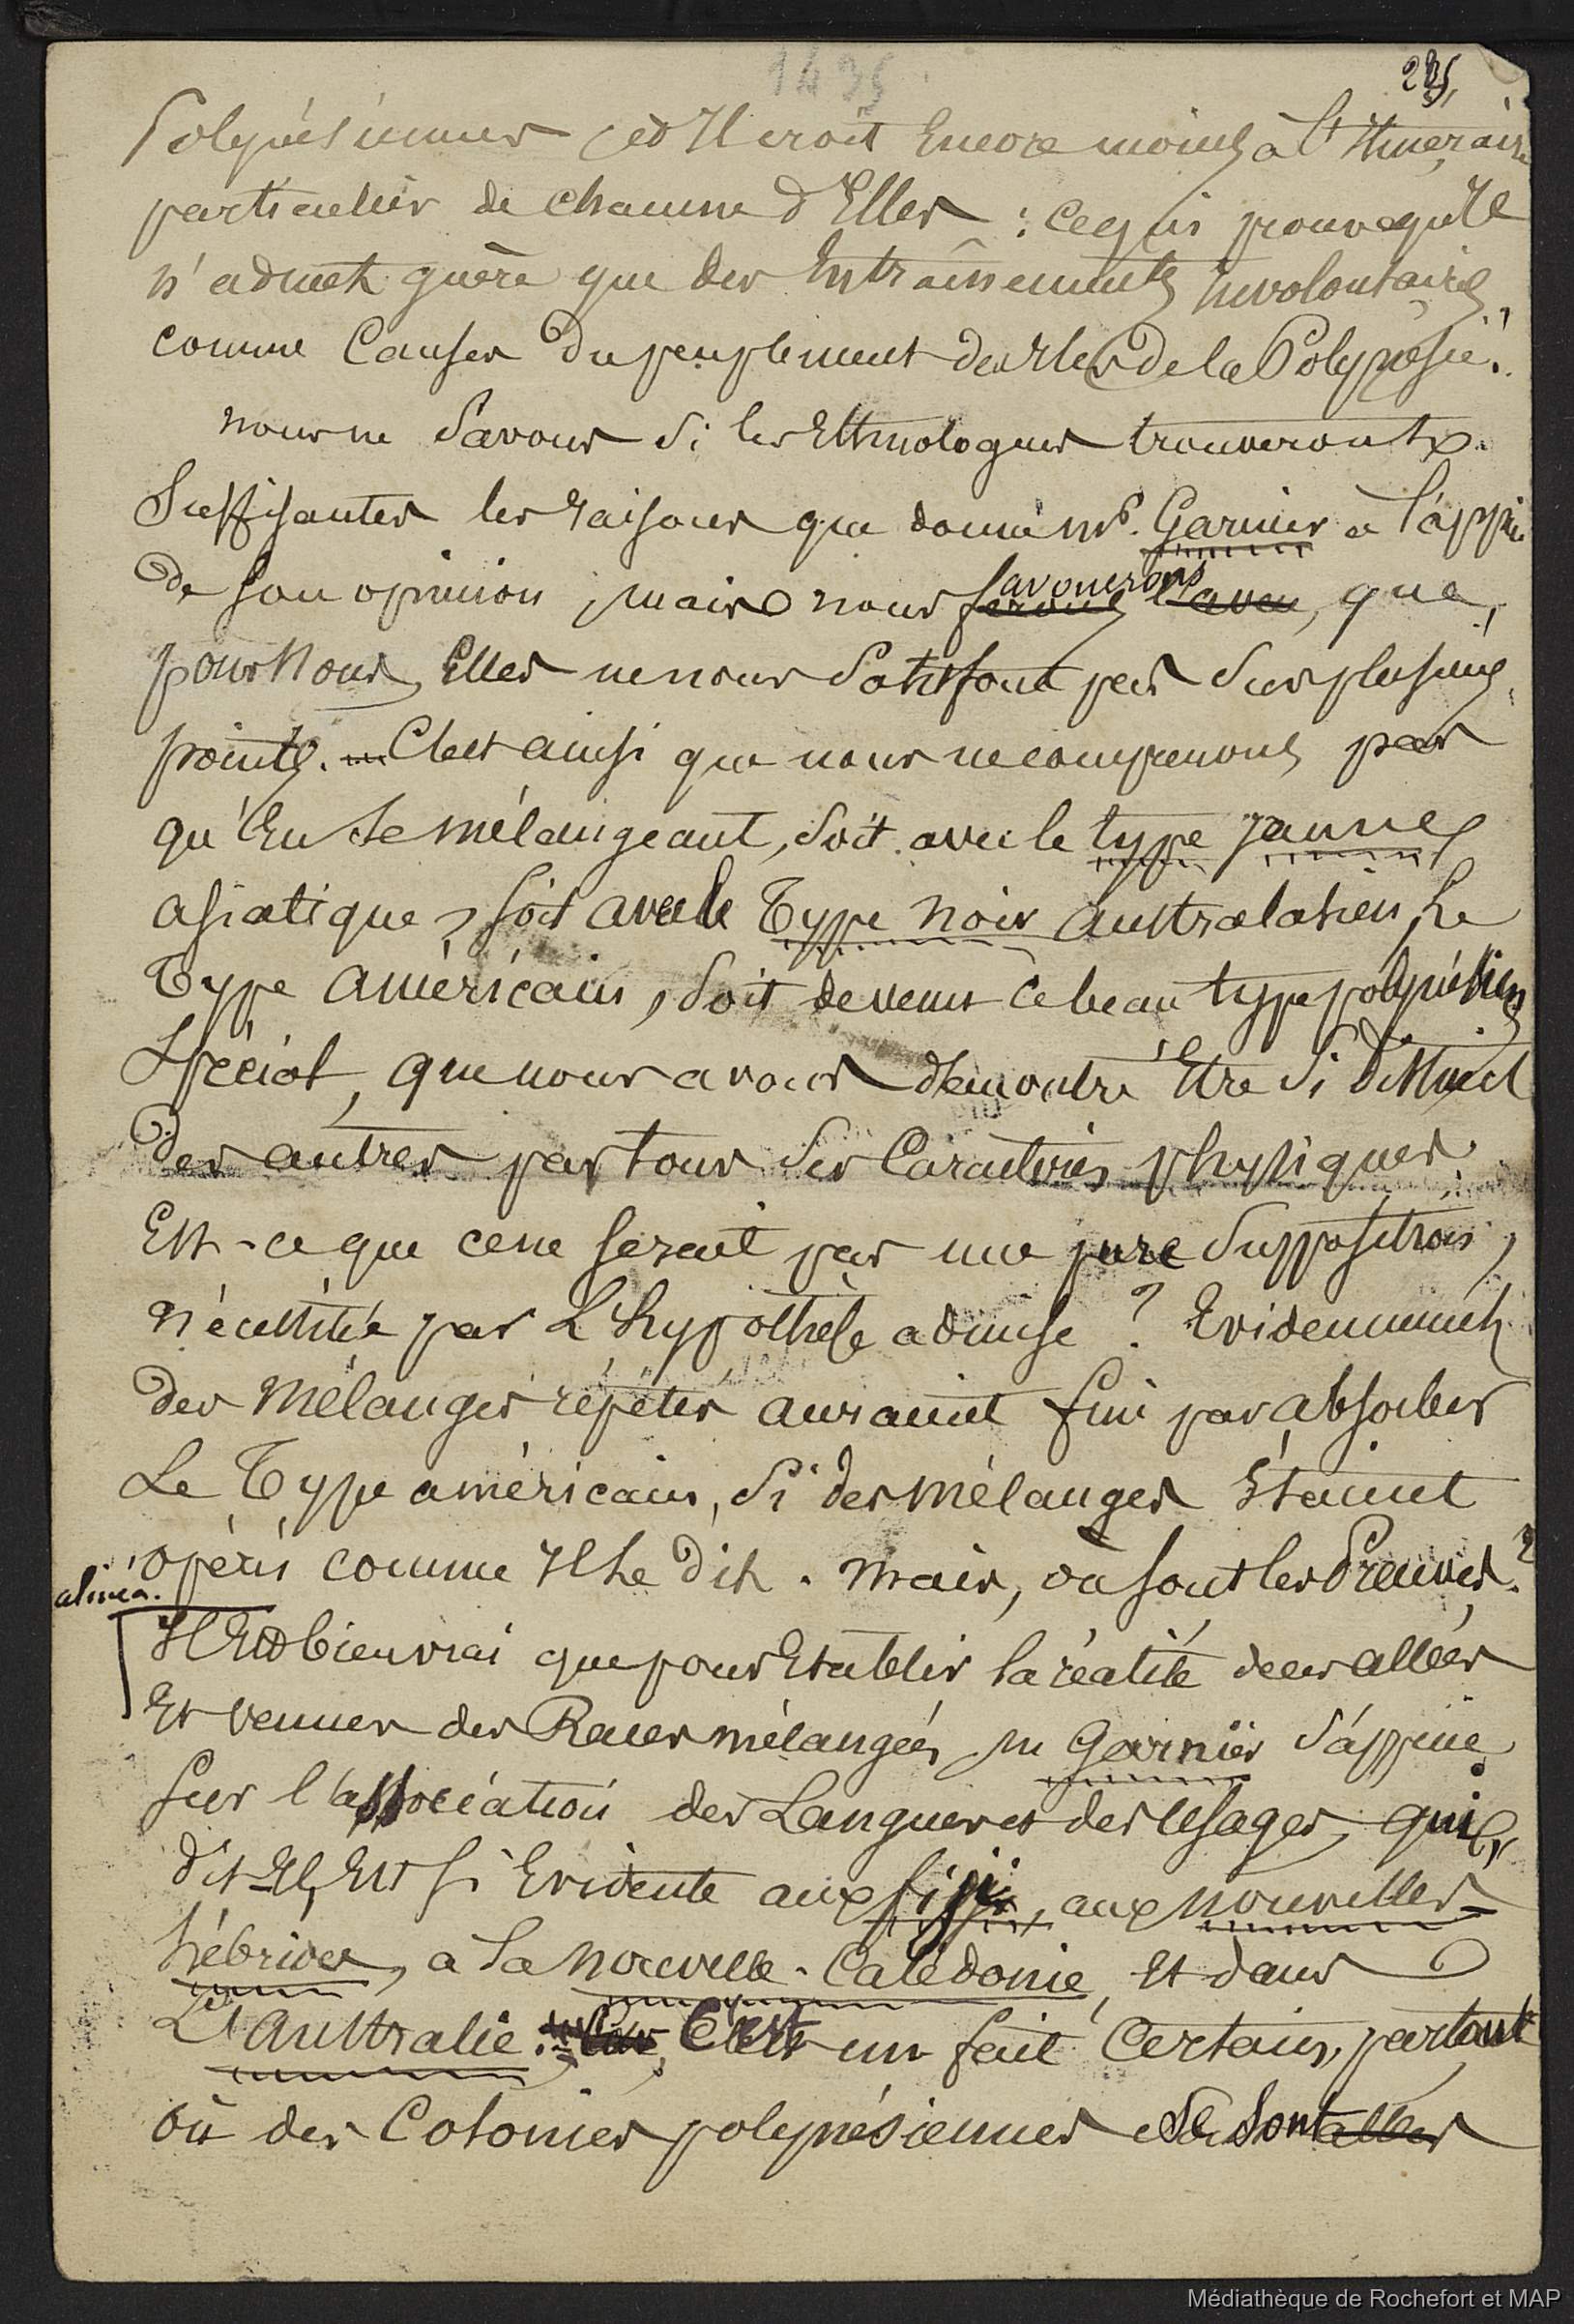 1435
235
Polynésiennes et Il croit Encore moins à l'Itinéraire
particulier de chacune d'Elles : ce qui prouve qu'Il
n'admet guère que des Entraînements Involontaires,
comme Causes du peuplement des Iles de la Polynésie.
nous ne Savons Si les Ethnologues trouveront
Suffisantes les raisons que donne Mr. Garnier à l'appui
de Son opinion, mais nous avouerons que,
pour Nous, Elles ne nous Satisfont pas Sur plusieurs
points. C'est ainsi que nous ne comprenons pas
qu'En se mélangeant, Soit avec le type jaune
asiatique, soit avec le Type noir australasien, le
Type américain, Soit devenu ce beau type polynésien
Spécial, que nous avons démontré Être Si distinct
des autres par tous Ses Caractères physiques.
Est-ce que ce ne serait pas une pure Supposition,
nécessitée par L'hypothèse admise ? Evidemment
des Mélanges répétés auraient fini par absorber
Le Type américain, Si des mélanges Etaient
opérés comme Il le dit. Mais, où sont les Preuves ?
alinéa.
Il Est bien vrai que pour Etablir la réalité de ces allées
Et venues des Races mélangées, M Garnier S'appuie
Sur l'association des Langues et des Usages, qui,
dit-Il, Est Si Evidente aux fijii, aux Nouvelles-
hébrides, à la Nouvelle-Calédonie, Et dans
L'Australie. C'est un fait Certain, partout
où des Colonies polynésiennes Se Sont allées